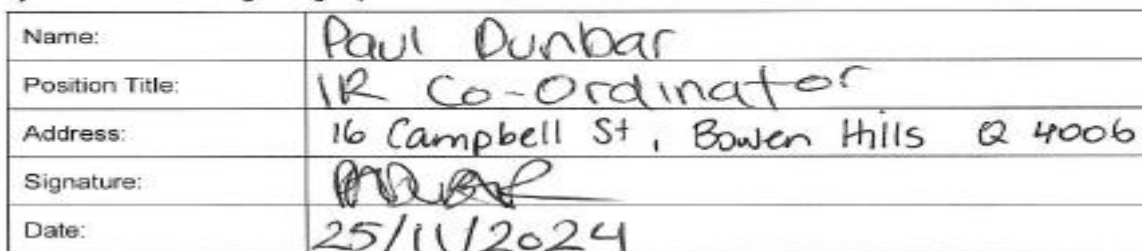 Name: Paul Dunbar
Position Title: IR Co-Ordinator
Address: 16 Campbell St, Bowen Hills Q 4006
Signature:
Date: 25/11/2024